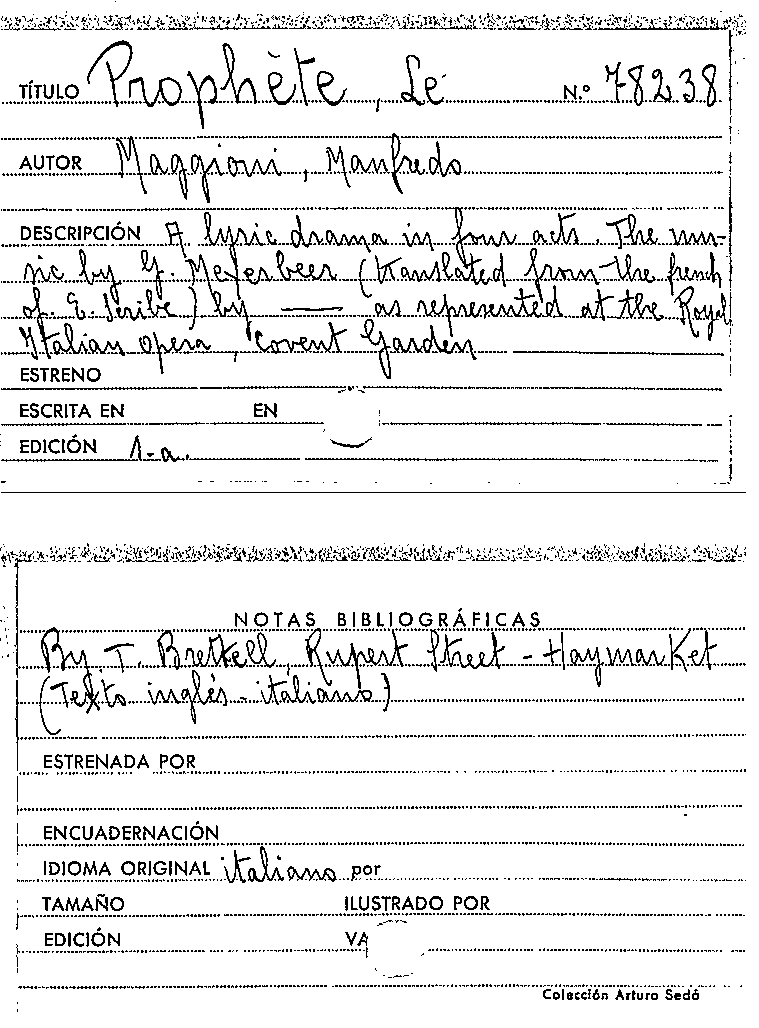 TÍTULO Prophète, Le N.º 78238
AUTOR Maggioni, Manfredo
DESCRIPCIÓN A lyric drama in four acts. The mu-
sic by G. Meyerbeer (translated from the french
of. E. Scribe) by —— as represented at the Royal
Italian opera, Covent Garden
ESTRENO
ESCRITA EN EN
EDICIÓN 1-a.
NOTAS BIBLIOGRÁFICAS
By. T. Brettell, Rupert Street - Haymarket
(Texto inglés - italiano)
ESTRENADA POR
ENCUADERNACIÓN
IDIOMA ORIGINAL italiano por
TAMAÑO ILUSTRADO POR
EDICIÓN VA
Colección Arturo Sedó